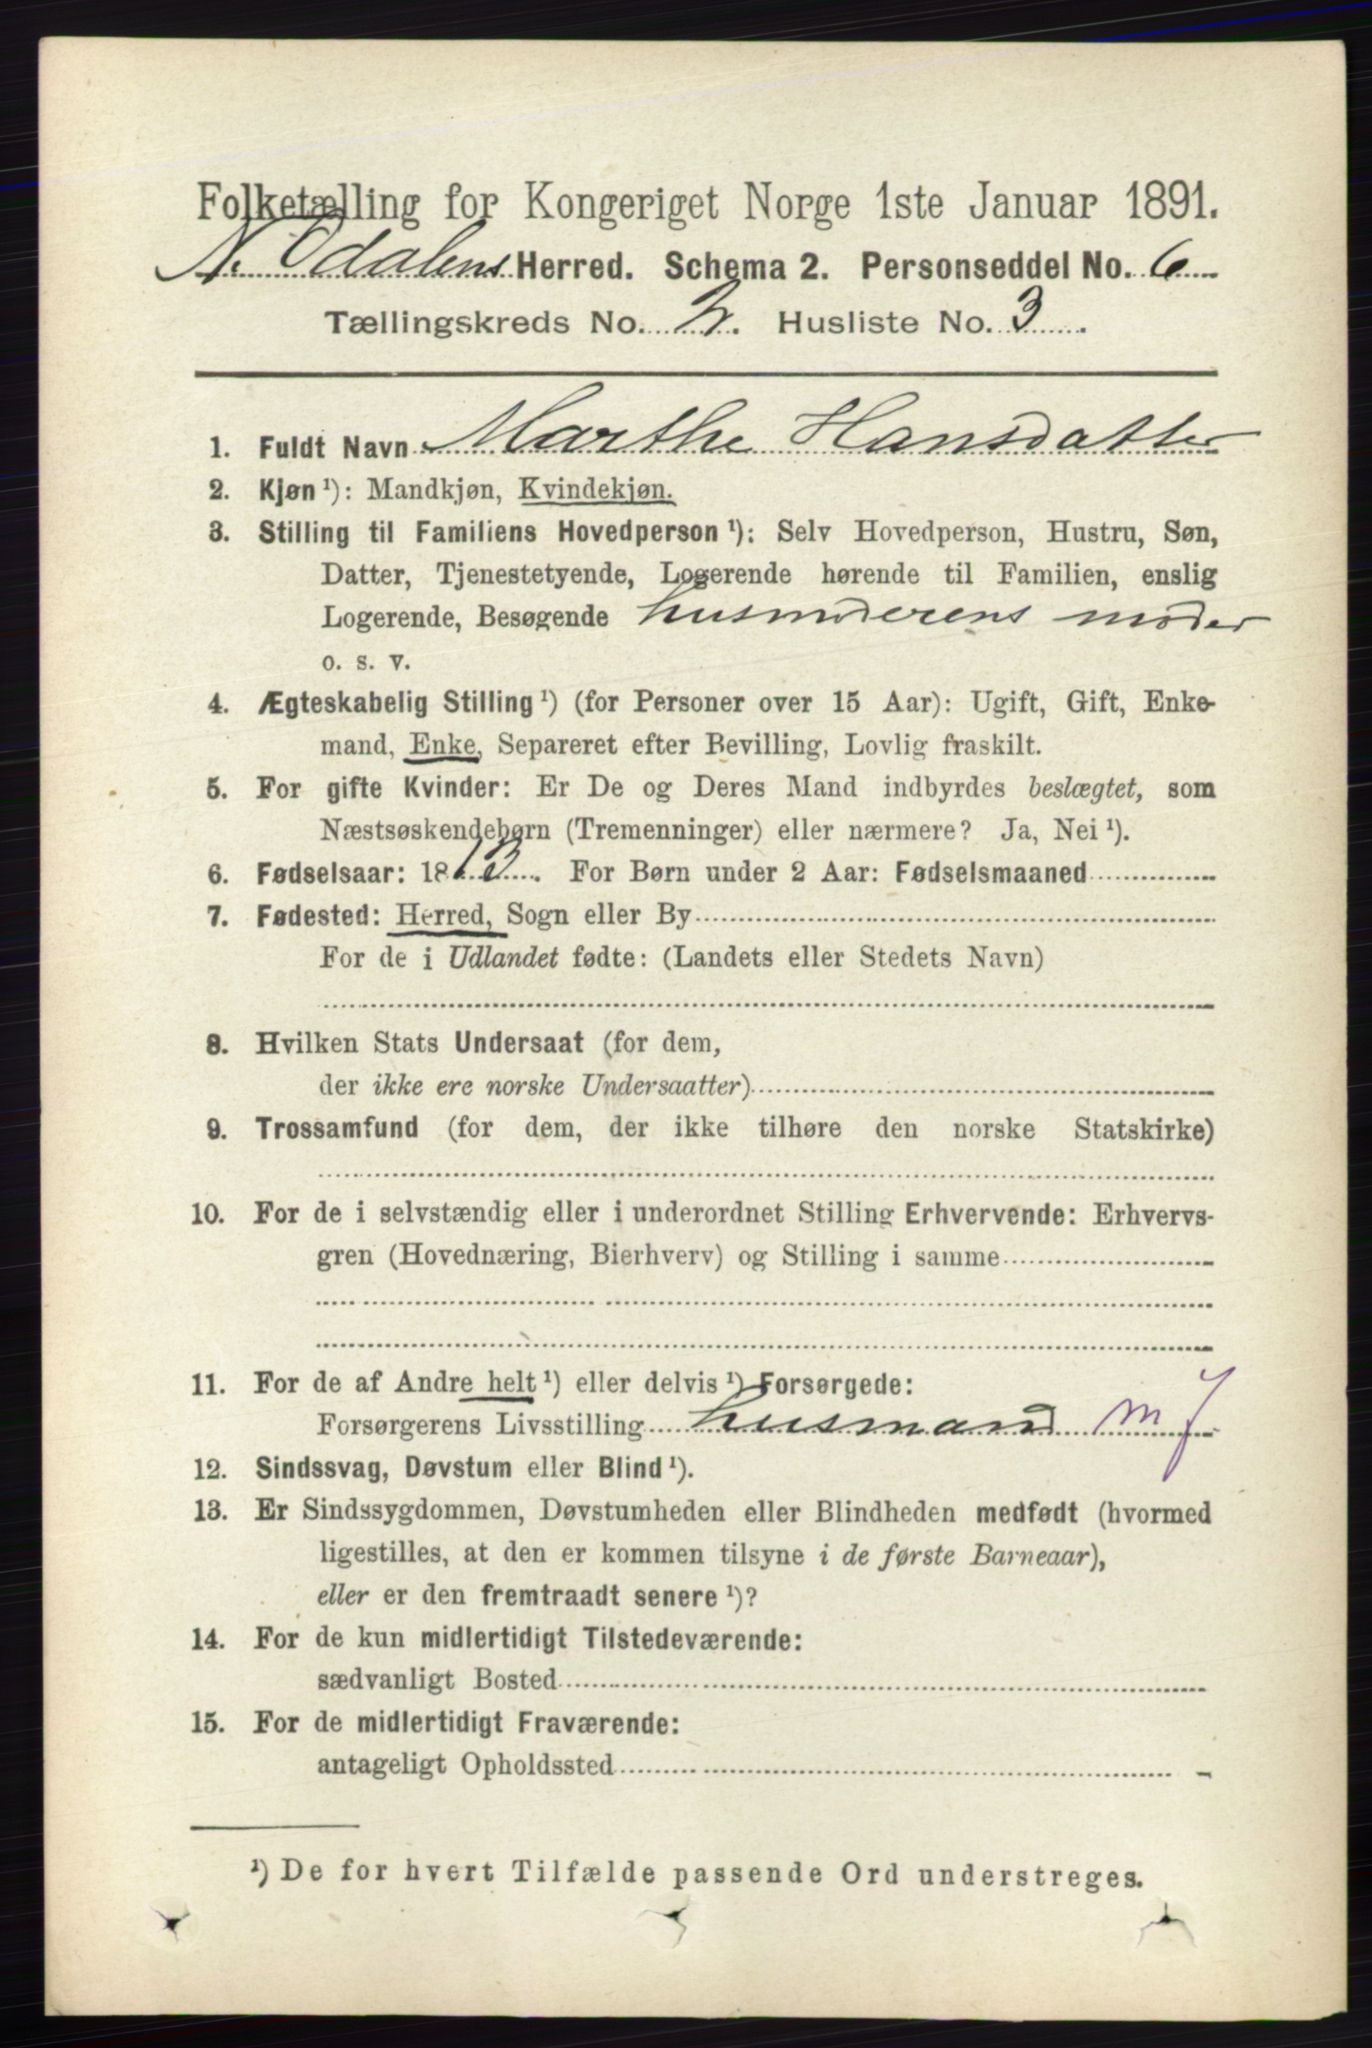 Folketælling for Kongeriget Norge 1ste Januar 1891.
N. Odalens Herred. Schema 2. Personseddel No. 6
Tællingskreds No. 2. Husliste No. 3.
1. Fuldt Navn Marthe Hansdatter
2. Kjøn ¹): Mandkjøn, Kvindekjøn.
3. Stilling til Familiens Hovedperson ¹): Selv Hovedperson, Hustru, Søn,
Datter, Tjenestetyende, Logerende hørende til Familien, enslig
Logerende, Besøgende husmoderens moder
o. s. v.
4. Ægteskabelig Stilling ¹) (for Personer over 15 Aar): Ugift, Gift, Enke-
mand, Enke, Separeret efter Bevilling, Lovlig fraskilt.
5. For gifte Kvinder: Er De og Deres Mand indbyrdes beslægtet, som
Næstsøskendebørn (Tremenninger) eller nærmere? Ja, Nei ¹).
6. Fødselsaar: 1813. For Børn under 2 Aar: Fødselsmaaned
7. Fødested: Herred, Sogn eller By
For de i Udlandet fødte: (Landets eller Stedets Navn)
8. Hvilken Stats Undersaat (for dem,
der ikke ere norske Undersaatter)
9. Trossamfund (for dem, der ikke tilhøre den norske Statskirke)
10. For de i selvstændig eller i underordnet Stilling Erhvervende: Erhvervs-
gren (Hovednæring, Bierhverv) og Stilling i samme
11. For de af Andre helt ¹) eller delvis ¹) Forsørgede:
Forsørgerens Livsstilling husmand m J
12. Sindssvag, Døvstum eller Blind ¹).
13. Er Sindssygdommen, Døvstumheden eller Blindheden medfødt (hvormed
ligestilles, at den er kommen tilsyne i de første Barneaar),
eller er den fremtraadt senere ¹)?
14. For de kun midlertidigt Tilstedeværende:
sædvanligt Bosted
15. For de midlertidigt Fraværende:
antageligt Opholdssted
¹) De for hvert Tilfælde passende Ord understreges.